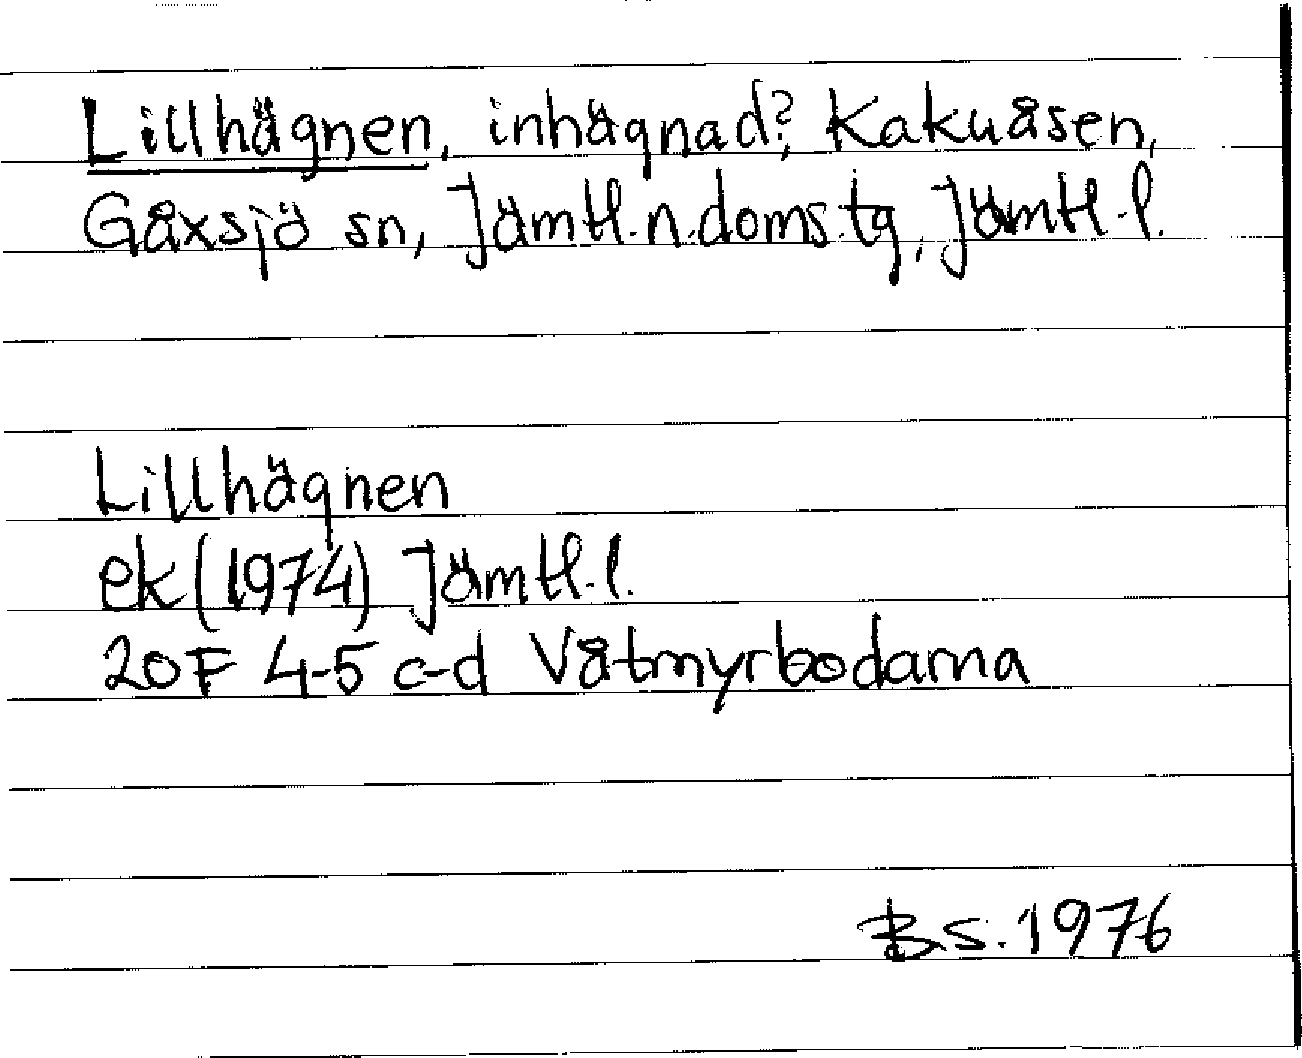 Lillhägnen, inhägnad?, Kakuåsen,
Gåxsjö sn, Jämtl.n.doms.tg, Jämtl.l.
Lillhägnen
ek (1974) Jämtl.l.
20F 4-5 c-d Våtmyrbodarna
B.S. 1976